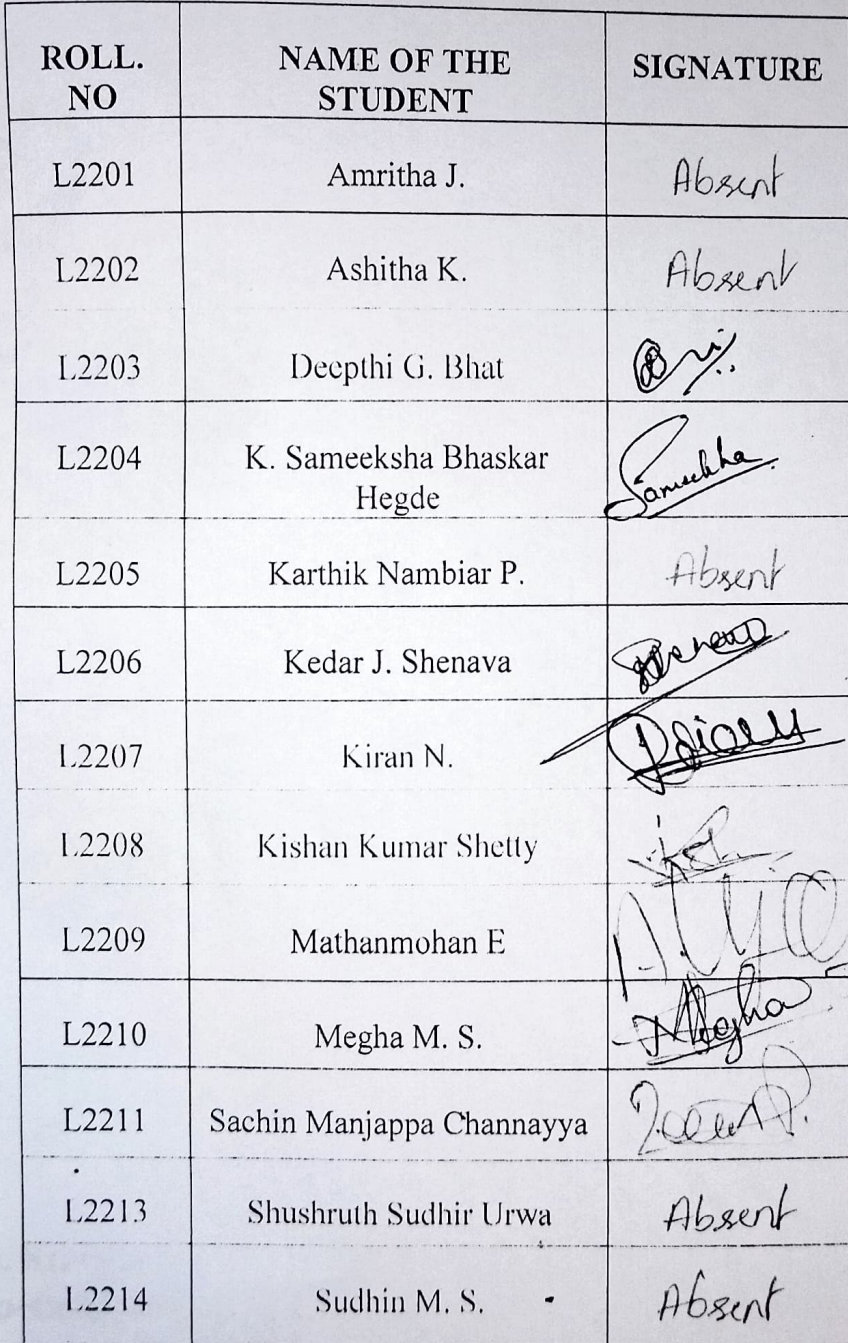 ROLL. NO NAME OF THE STUDENT SIGNATURE
L2201 Amritha J. Absent
L2202 Ashitha K. Absent
L2203 Deepthi G. Bhat
L2204 K. Sameeksha Bhaskar Hegde
L2205 Karthik Nambiar P. Absent
L2206 Kedar J. Shenava
L2207 Kiran N.
L2208 Kishan Kumar Shetty
L2209 Mathanmohan E
L2210 Megha M. S. Megha
L2211 Sachin Manjappa Channayya
L2213 Shushruth Sudhir Urwa Absent
L2214 Sudhin M. S. Absent